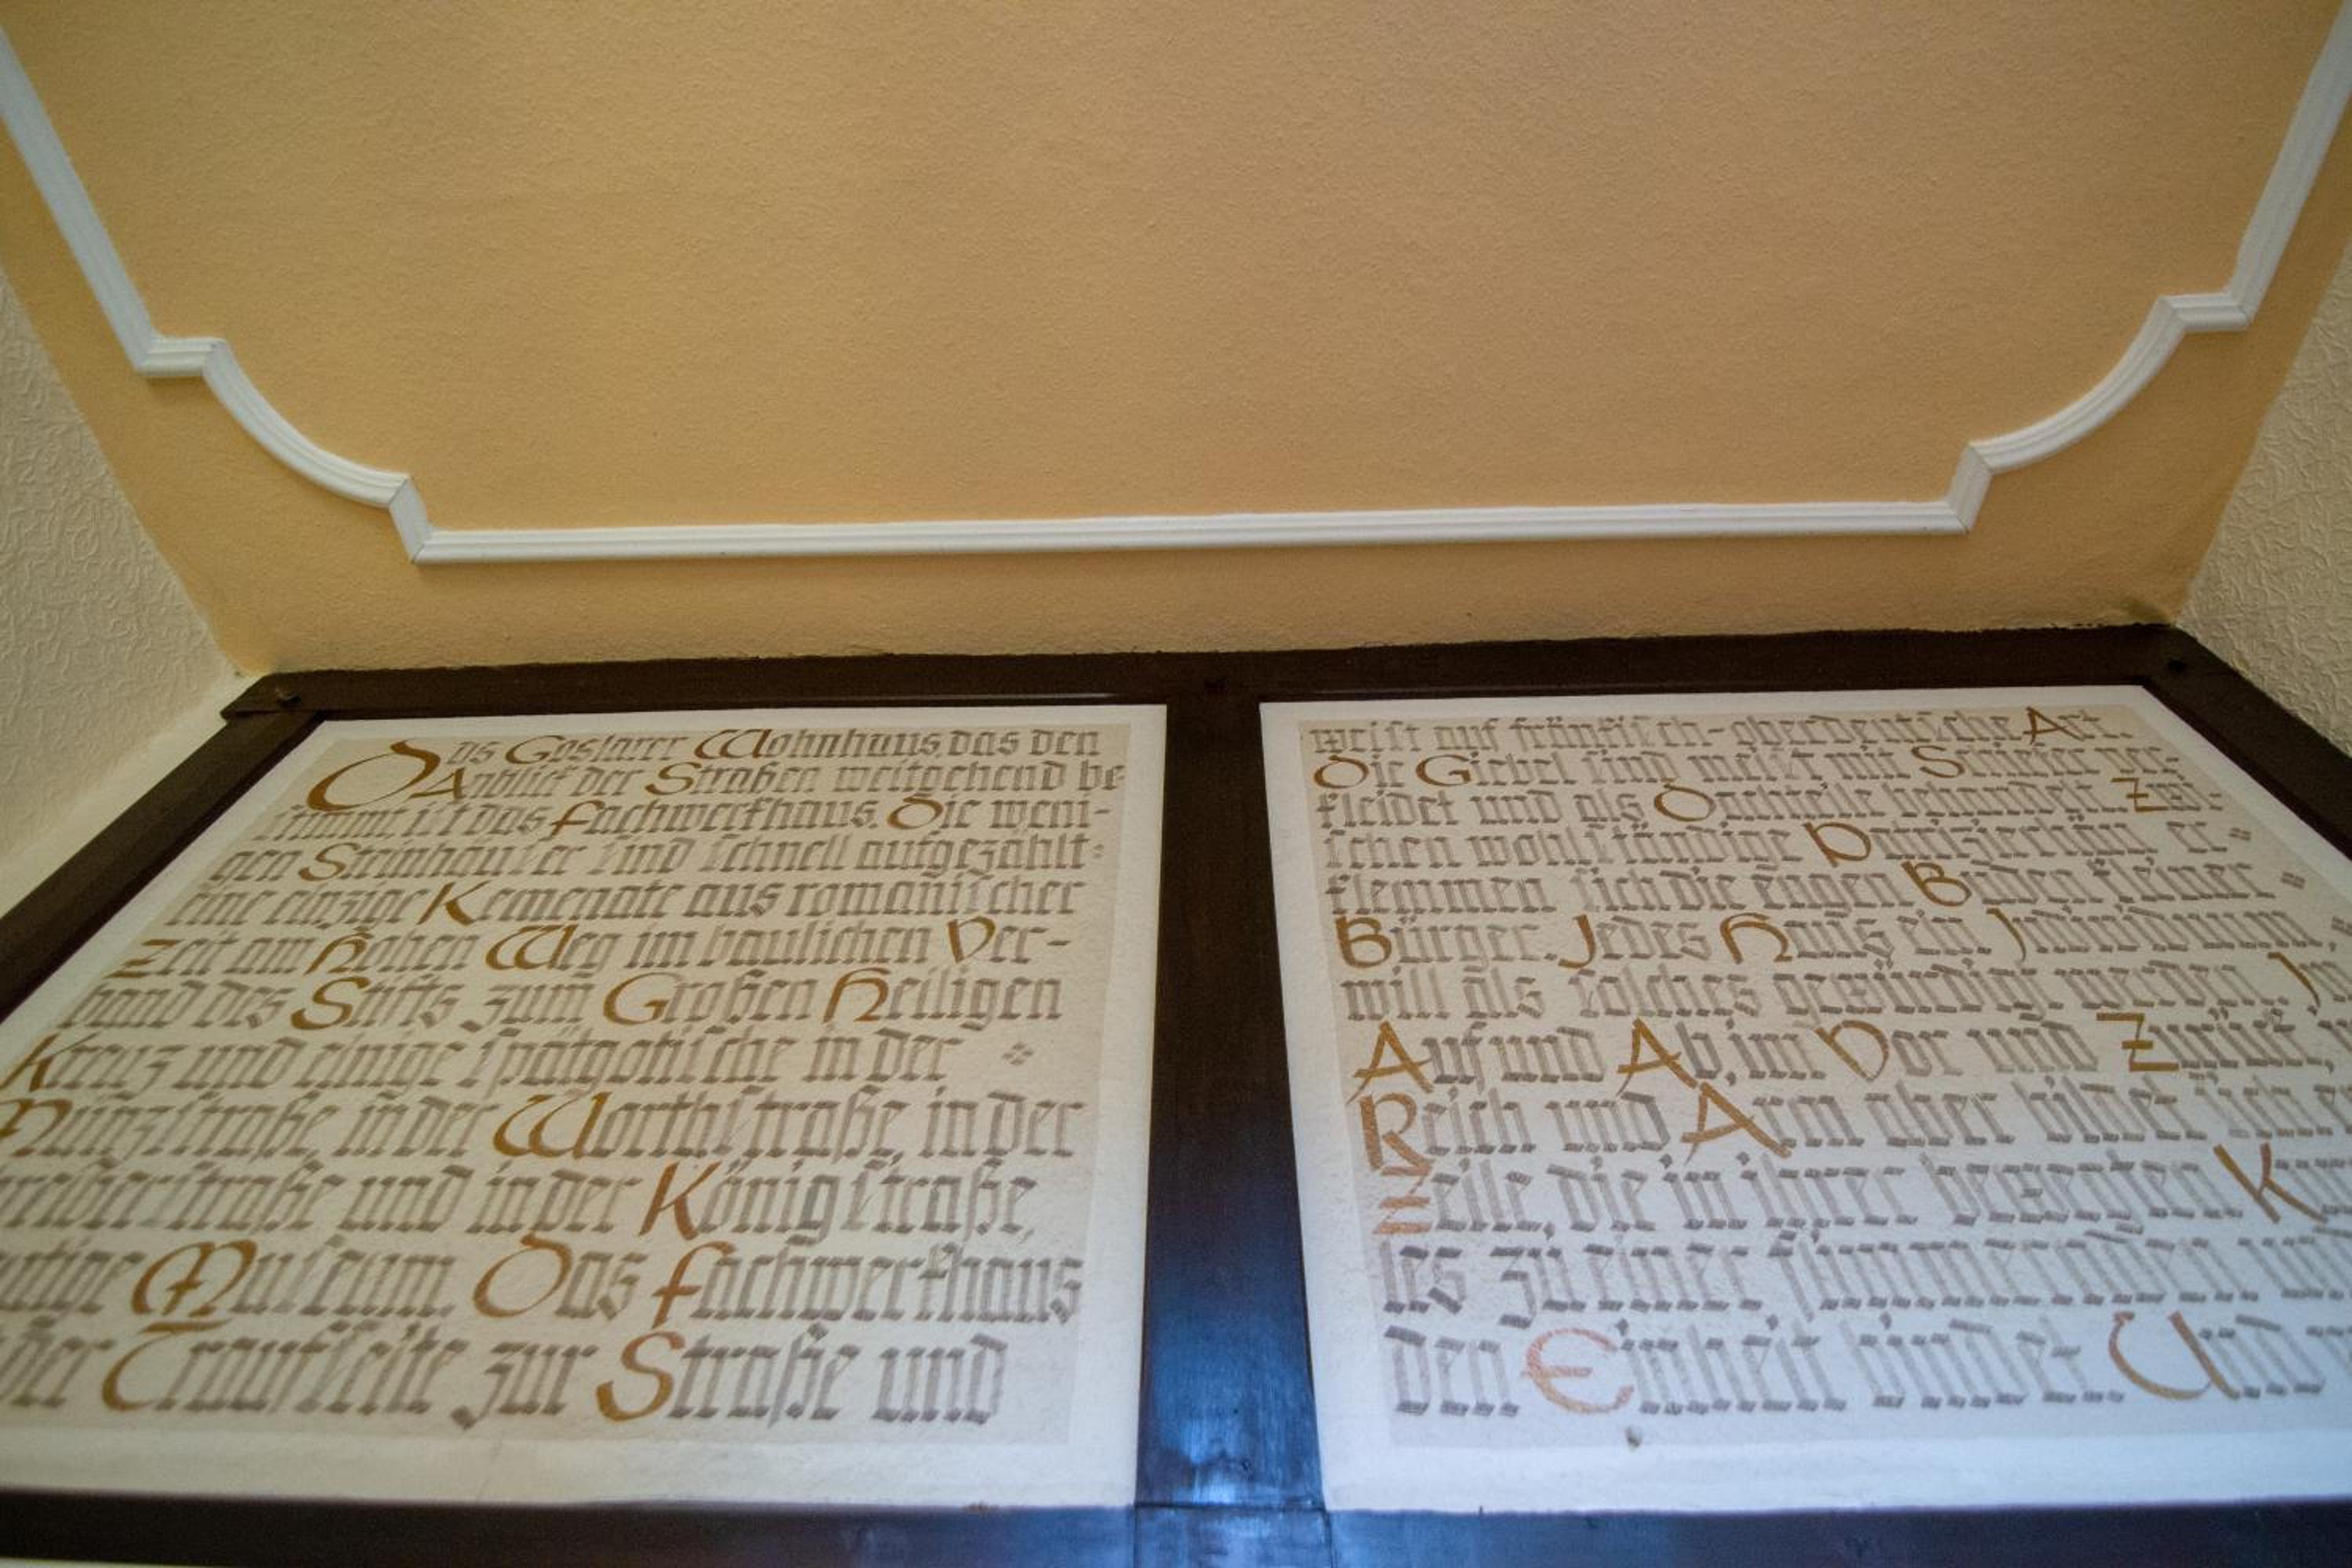 Das Goslarer Wohnhaus das den
Anblick der Straßen weitgehend be-
stimmt, ist das Fachwerkhaus. Die weni-
gen Steinhäuser sind schnell aufgezählt:
eine einzige Kemenate aus romanischer
Zeit am Hohen Weg im baulichen Ver-
band des Stifts zum Großen Heiligen
Kreuz und einige spätgotische in der
Münzstraße, in der Worthstraße, in der
straße und in der Königstraße,
Museum. Das Fachwerkhaus
der Traufseite zur Straße und
weist auf fränkisch-oberdeutsche Art.
Die Giebel sind meist mit Schiefer ver-
kleidet und als Dachteile behandelt. Zwi-
schen wohlständige Patrizierhäuser
klemmen sich die engen Buden kleiner
Bürger. Jedes Haus ein Individuum,
will als solches gewürdigt werden. Im
Auf und Ab, im Vor und Zurück,
Reich und Arm aber bildet sich
Zeile, die in ihrer bewegten
les zu einer schwingenden
den Einheit bindet. Und